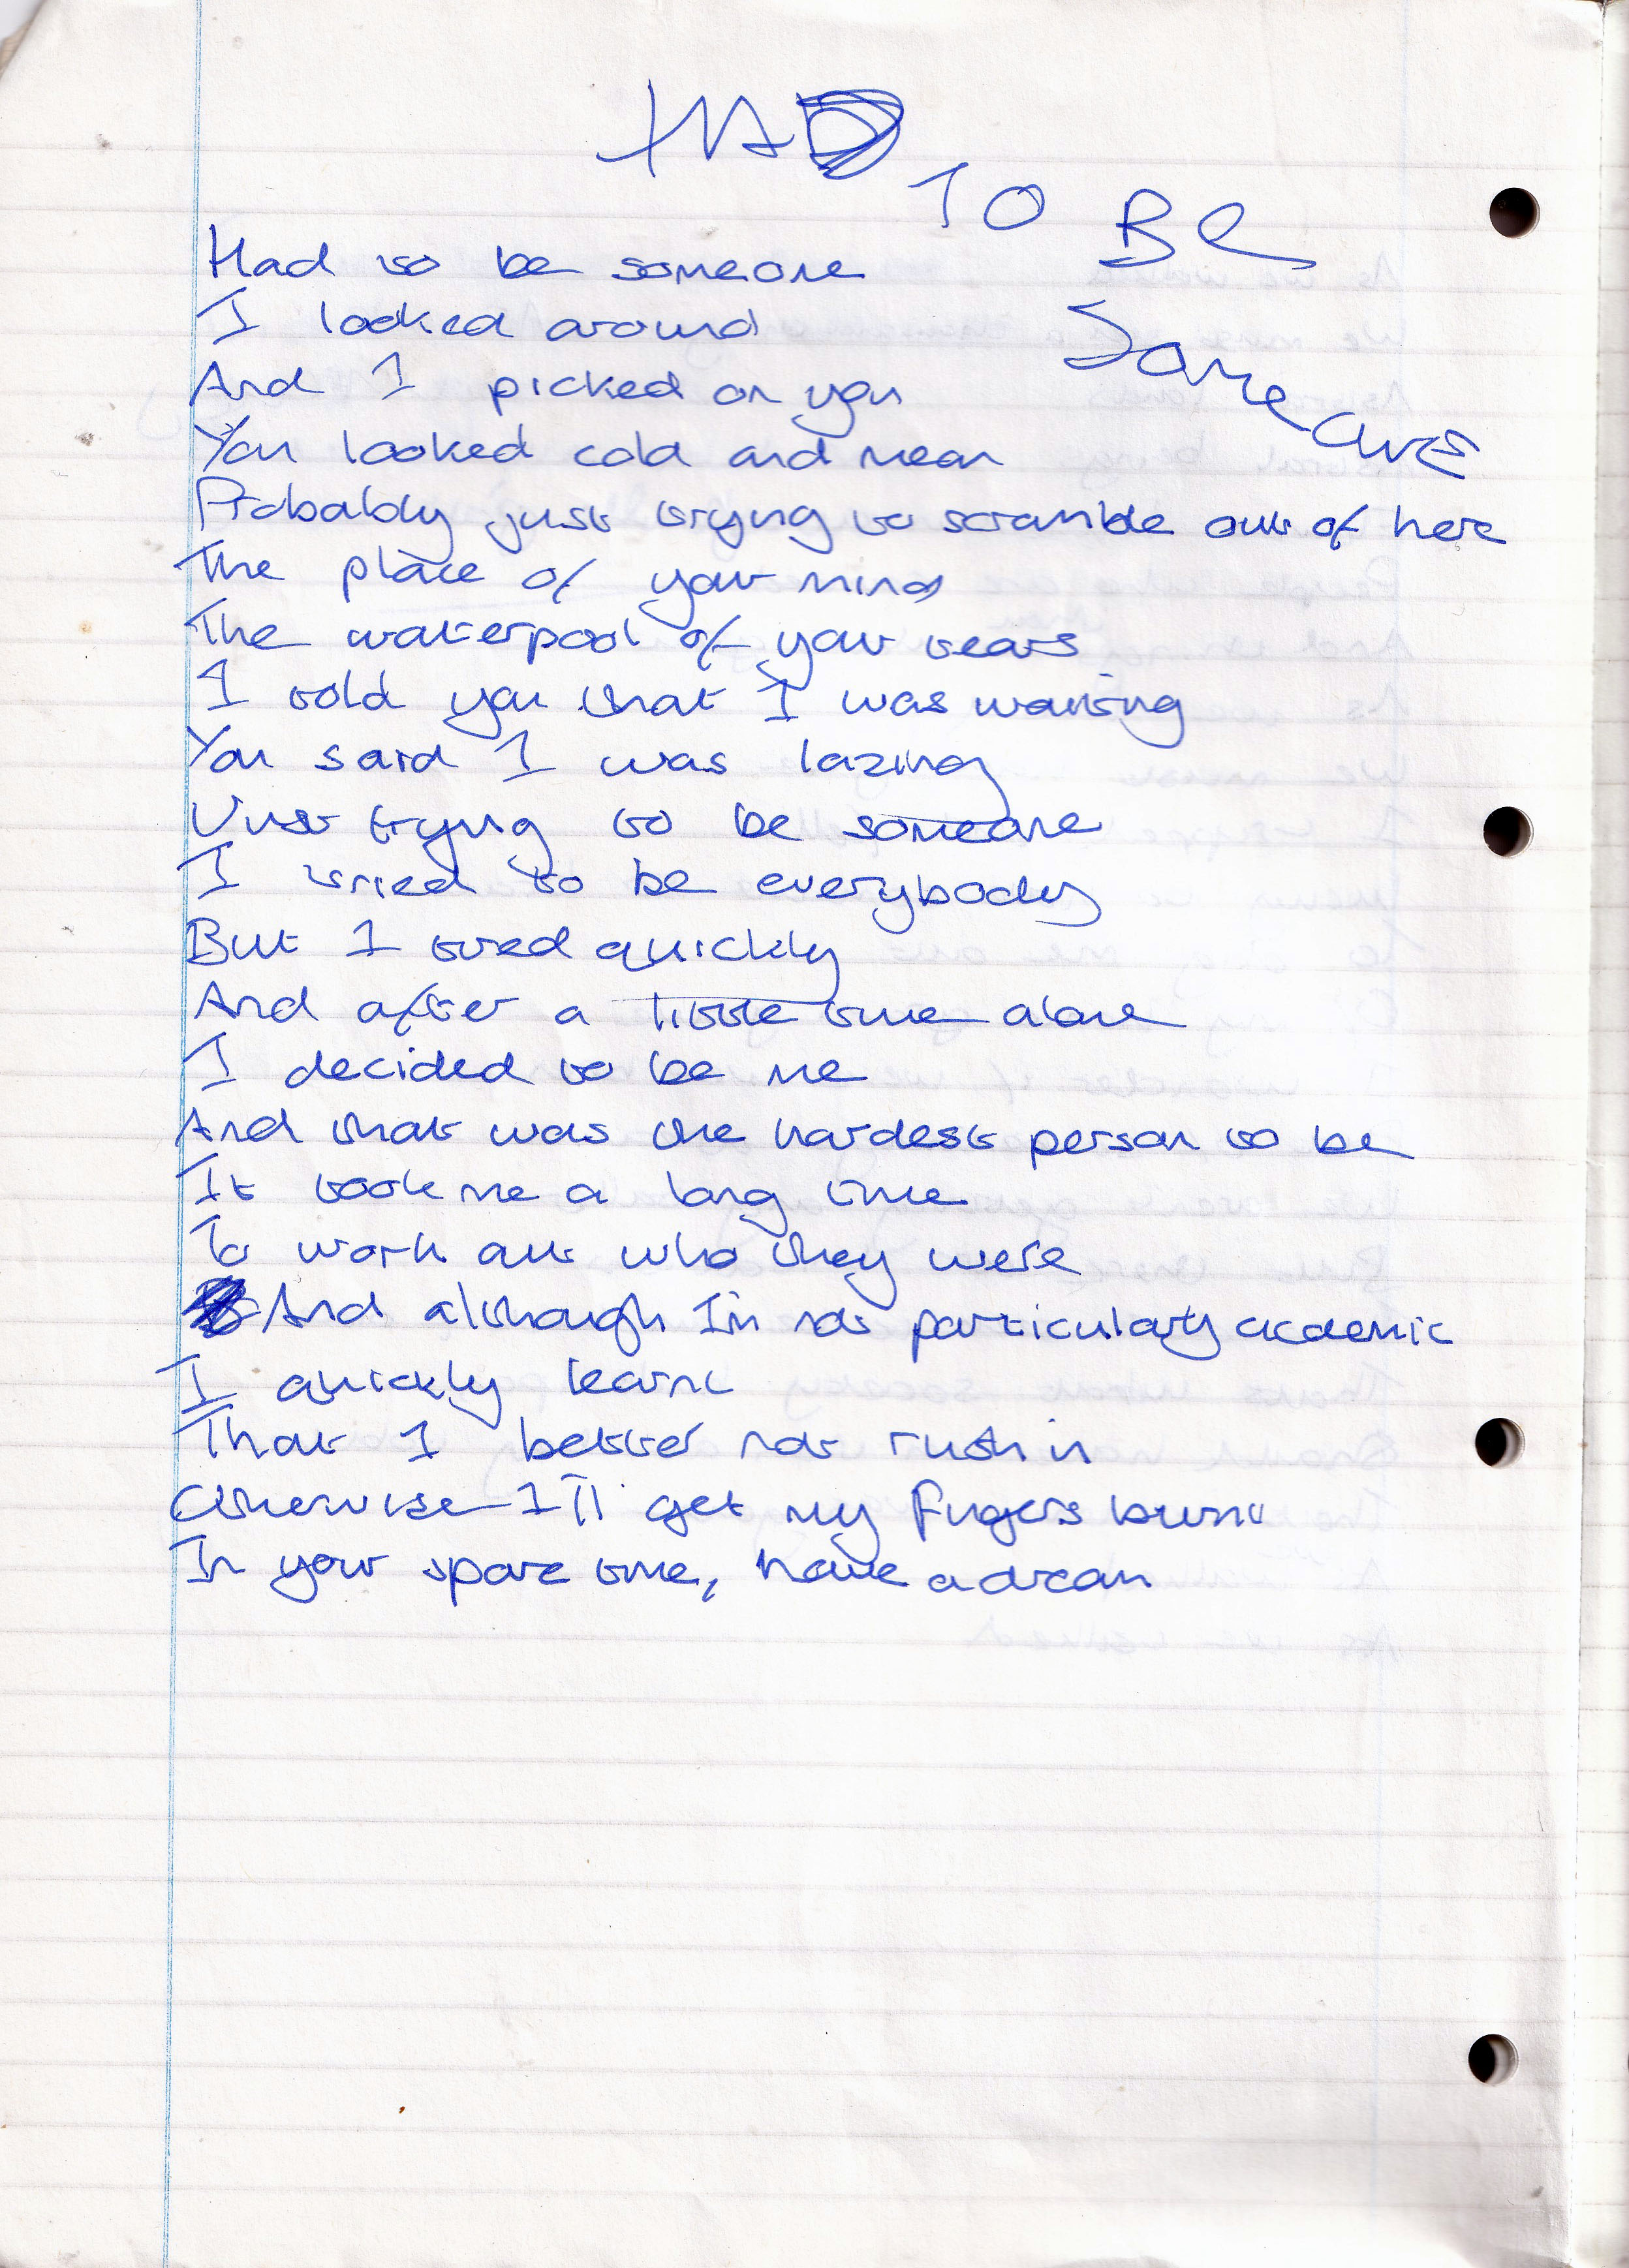 HAD TO BE
SOMEONE
Had to be someone
I looked around
And I picked on you
You looked cold and mean
Probably just trying to scramble out of here
The place of your mind
The waterpool of your tears
I told you that I was waiting
You said I was lazing
Just trying to be someone
I tried to be everybody
But I tired quickly
And after a little time alone
I decided to be me
And that was the hardest person to be
It took me a long time
To work out who they were
And although I'm not particularly academic
I quickly learnt
That I better not rush in
Otherwise I'll get my fingers burnt
In your spare time, have a dream